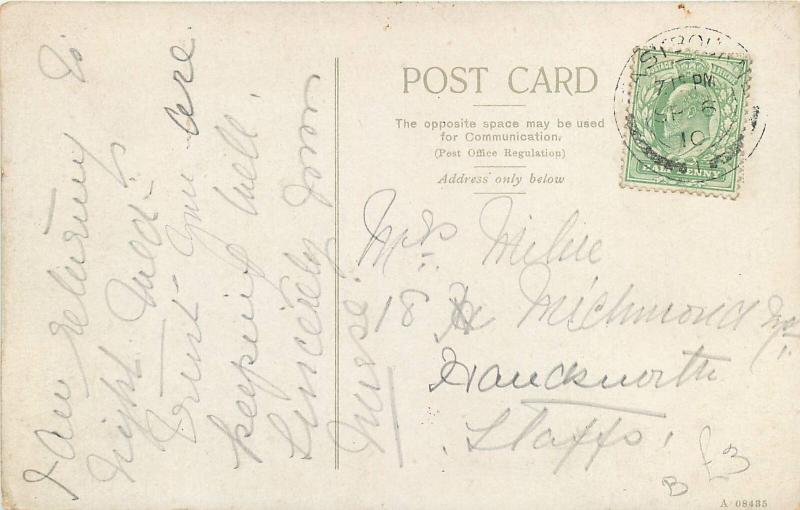 I am returning to
night Wed-
Trust you are
keeping well.
Sincerely yours
Nurse.
POST CARD
The opposite space may be used
for Communication.
(Post Office Regulation)
Address only below
7.15 PM
SP
10
POSTAGE
HALFPENNY
Mrs. Milne
18 Richmond
Handsworth
Staffs.
B £3
A 08435